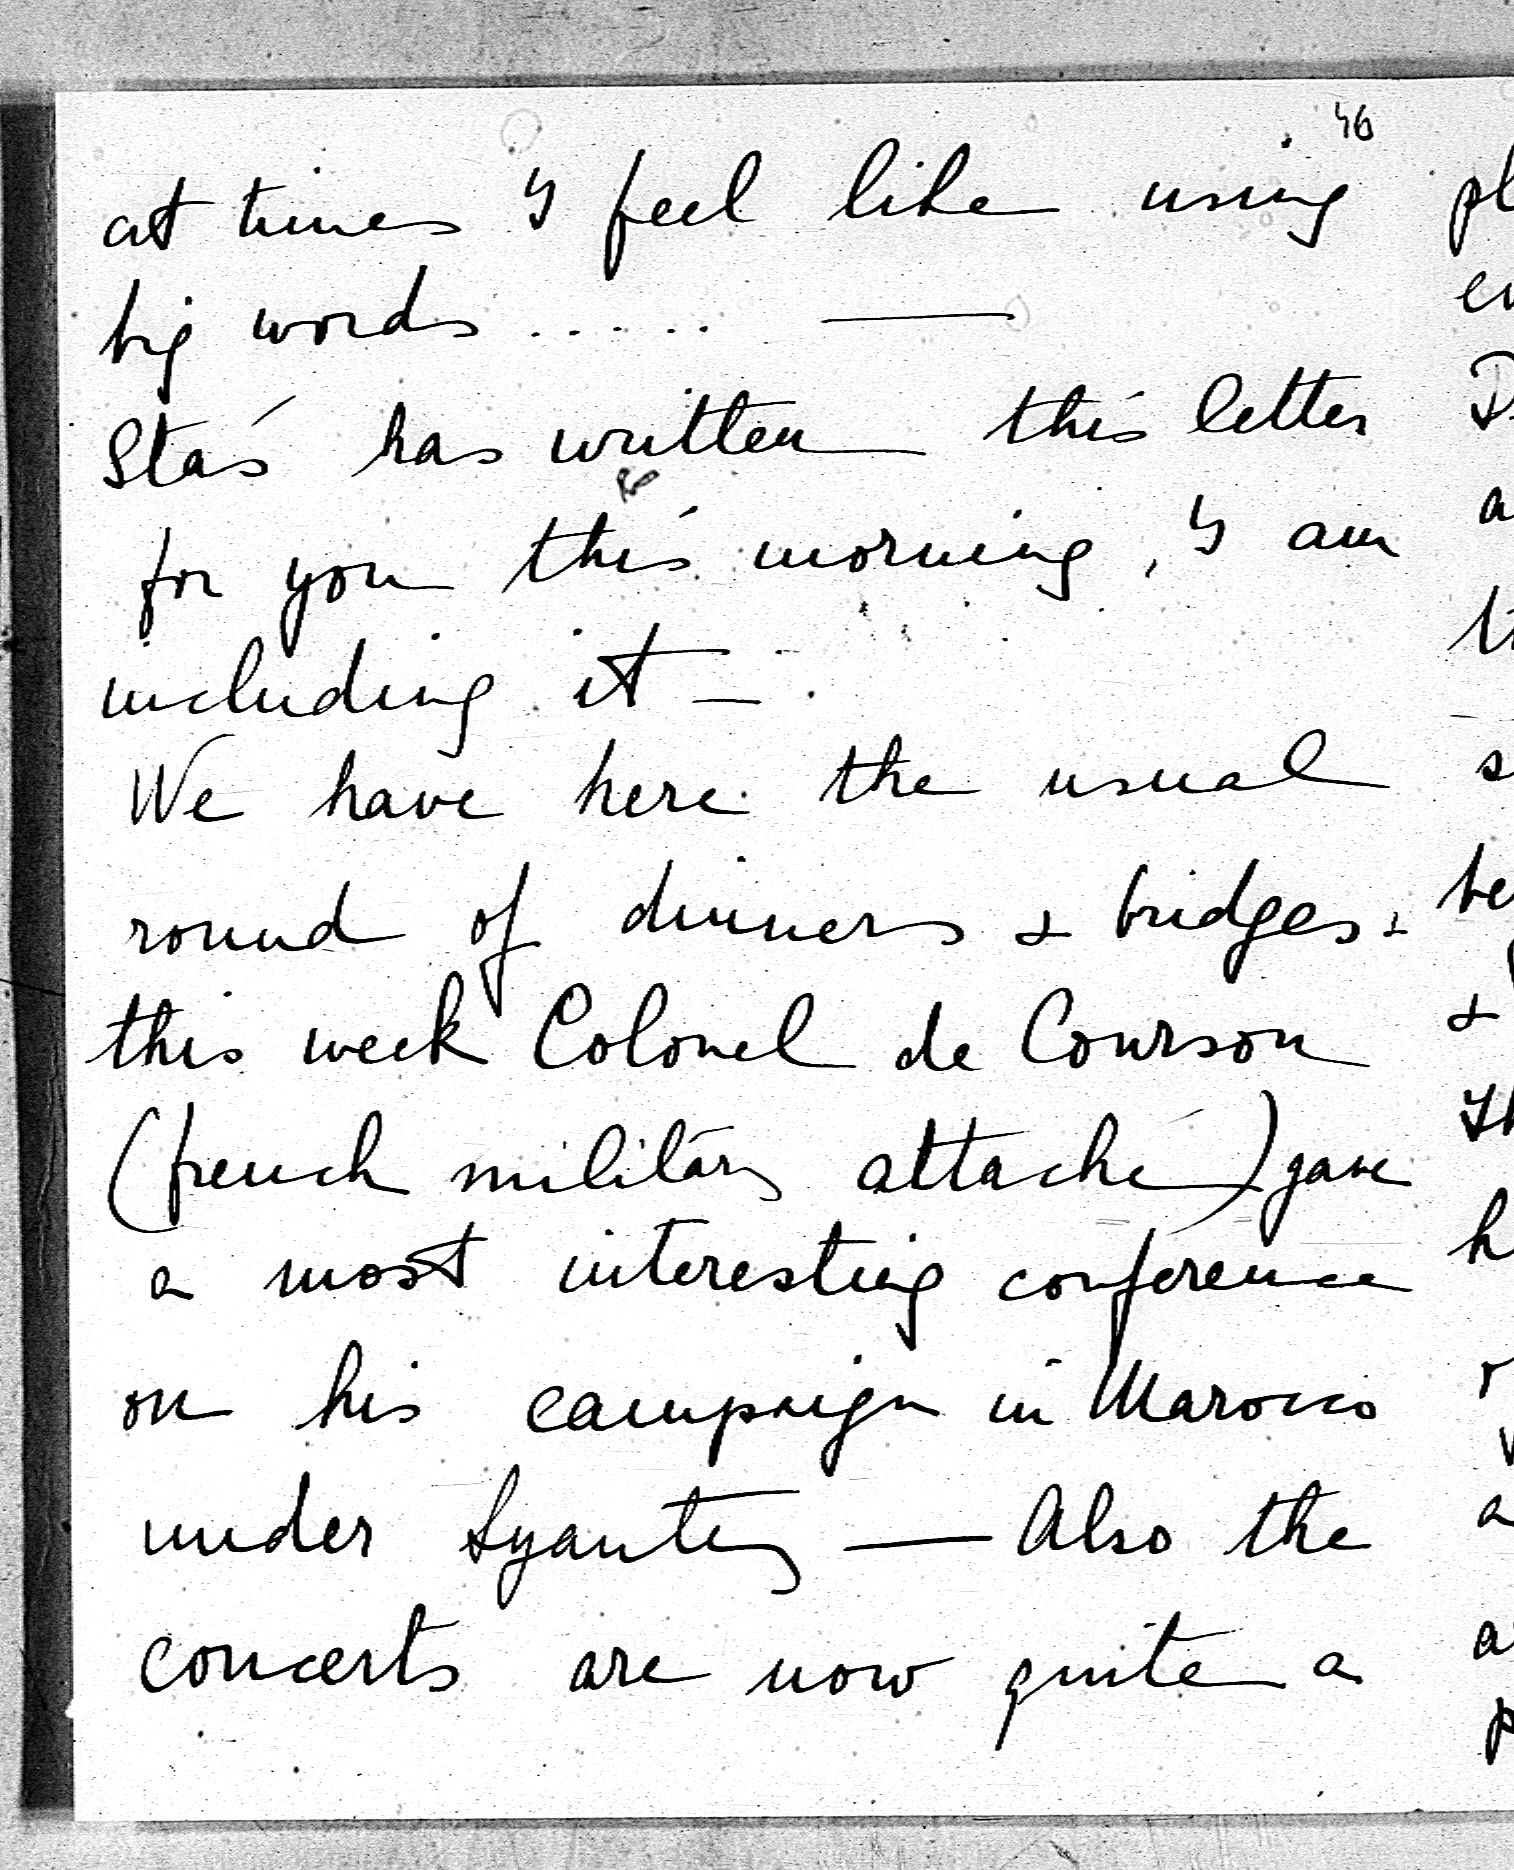 46
at times I feel like using
big words ..... —
Staś has written this letter
for you this morning, I am
including it —
We have here the usual
round of dinners & bridges. &
this week Colonel de Courson
(french military attaché) gave
a most interesting conference
on his campaign in Marocco
under Lyautey — Also the
concerts are now quite a